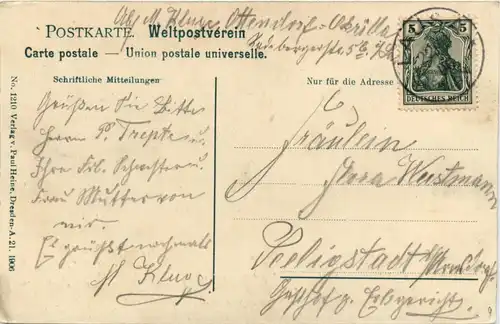 Abs. M. Kluge Ottendorf-Okrilla
POSTKARTE. Weltpostverein
Radebergerstr.
Carte postale — Union postale universelle.
5 5
DEUTSCHES REICH
Schriftliche Mitteilungen
Nur für die Adresse
Grüßen Sie Bitte
Herrn P. Trepte u.
Ihre Frl. Schwester u.
Frau Mutter von
mir.
Es grüßt nochmals
M Kluge
Fräulein
Dora
Seeligstadt
Gasthof z. Erbgericht.
No. 1210 Verlag v. Paul Heine, Dresden-A. 21. 1906